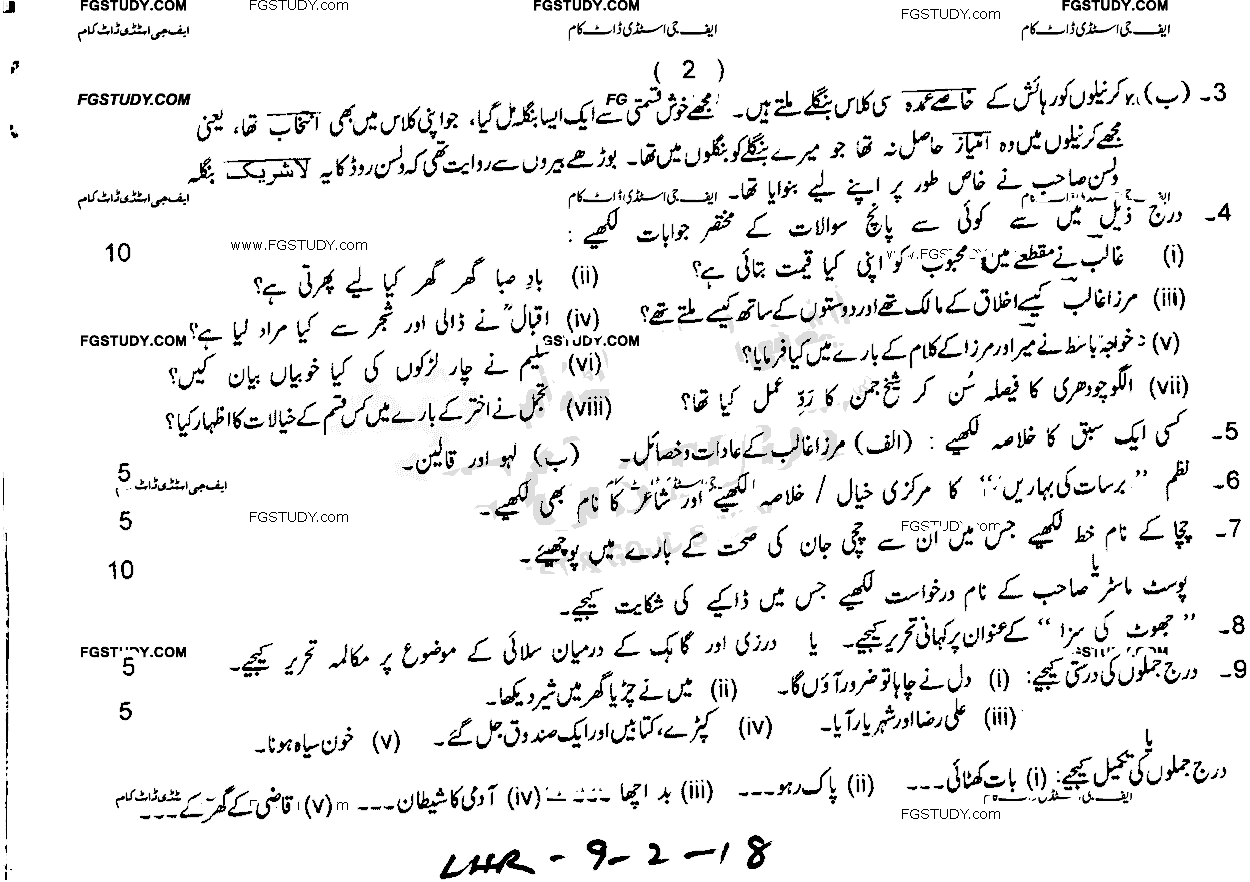 FGSTUDY.COM FGSTUDY.com FGSTUDY.COM FGSTUDY.com FGSTUDY.COM
ایف جی اسٹڈی ڈاٹ کام ایف جی اسٹڈی ڈاٹ کام ایف جی اسٹڈی ڈاٹ کام
( 2 )
3۔ (ب) کرنیلوں کو رہائش کے خاصے عمدہ سی کلاس بنگلے ملتے ہیں۔ مجھے خوش قسمتی سے ایک ایسا بنگلہ مل گیا، جو اپنی کلاس میں بھی انتخاب تھا، یعنی
FGSTUDY.COM FG
مجھے کرنیلوں میں وہ امتیاز حاصل نہ تھا جو میرے بنگلے کو بنگلوں میں تھا۔ بوڑھے بیروں سے روایت تھی کہ ولسن روڈ کا یہ لاشریک بنگلہ
ولسن صاحب نے خاص طور پر اپنے لیے بنوایا تھا۔
ایف جی اسٹڈی ڈاٹ کام ایف جی اسٹڈی ڈاٹ کام
4۔ درج ذیل میں سے کوئی سے پانچ سوالات کے مختصر جوابات لکھیے :
10 www.FGSTUDY.com www.FGSTUDY.com
(i) غالب نے مقطعے میں محبوب کو اپنی کیا قیمت بتائی ہے؟ (ii) بادِ صبا گھر گھر کیا لیے پھرتی ہے؟
(iii) مرزا غالب کیسے اخلاق کے مالک تھے اور دوستوں کے ساتھ کیسے ملتے تھے؟ (iv) اقبالؒ نے ڈالی اور شجر سے کیا مراد لیا ہے؟
FGSTUDY.COM GSTUDY.COM
(v) خواجہ باسط نے میر اور مرزا کے کلام کے بارے میں کیا فرمایا؟ (vi) سلیم نے چار لڑکوں کی کیا خوبیاں بیان کیں؟
(vii) الگو چودھری کا فیصلہ سُن کر شیخ جمن کا ردِّ عمل کیا تھا؟ (viii) تجمل نے اختر کے بارے میں کس قسم کے خیالات کا اظہار کیا؟
5۔ کسی ایک سبق کا خلاصہ لکھیے : (الف) مرزا غالب کے عادات و خصائل۔ (ب) لہو اور قالین۔
5 ایف جی اسٹڈی ڈاٹ
6۔ نظم "برسات کی بہاریں" کا مرکزی خیال / خلاصہ لکھیے اور شاعر کا نام بھی لکھیے۔
5 FGSTUDY.com FGSTUDY.com
7۔ چچا کے نام خط لکھیے جس میں ان سے چچی جان کی صحت کے بارے میں پوچھیے۔
10
یا
پوسٹ ماسٹر صاحب کے نام درخواست لکھیے جس میں ڈاکیے کی شکایت کیجیے۔
8۔ "جھوٹ کی سزا" کے عنوان پر کہانی تحریر کیجیے۔ یا درزی اور گاہک کے درمیان سلائی کے موضوع پر مکالمہ تحریر کیجیے۔
FGSTUDY.COM
5
9۔ درج جملوں کی درستی کیجیے: (i) دل نے چاہا تو ضرور آؤں گا۔ (ii) میں نے چڑیا گھر میں شیر دیکھا۔
5
(iii) علی رضا اور شہریار آیا۔ (iv) کپڑے، کتابیں اور ایک صندوق جل گئے۔ (v) خون سیاہ ہونا۔
یا
درج جملوں کی تکمیل کیجیے: (i) بات کھٹائی۔۔۔ (ii) پاک رہو۔۔۔ (iii) بد اچھا ۔۔۔ (iv) آدمی کا شیطان۔۔۔ (v) قاضی کے گھر کے۔۔۔
FGSTUDY.com
LHR - 9-2-18